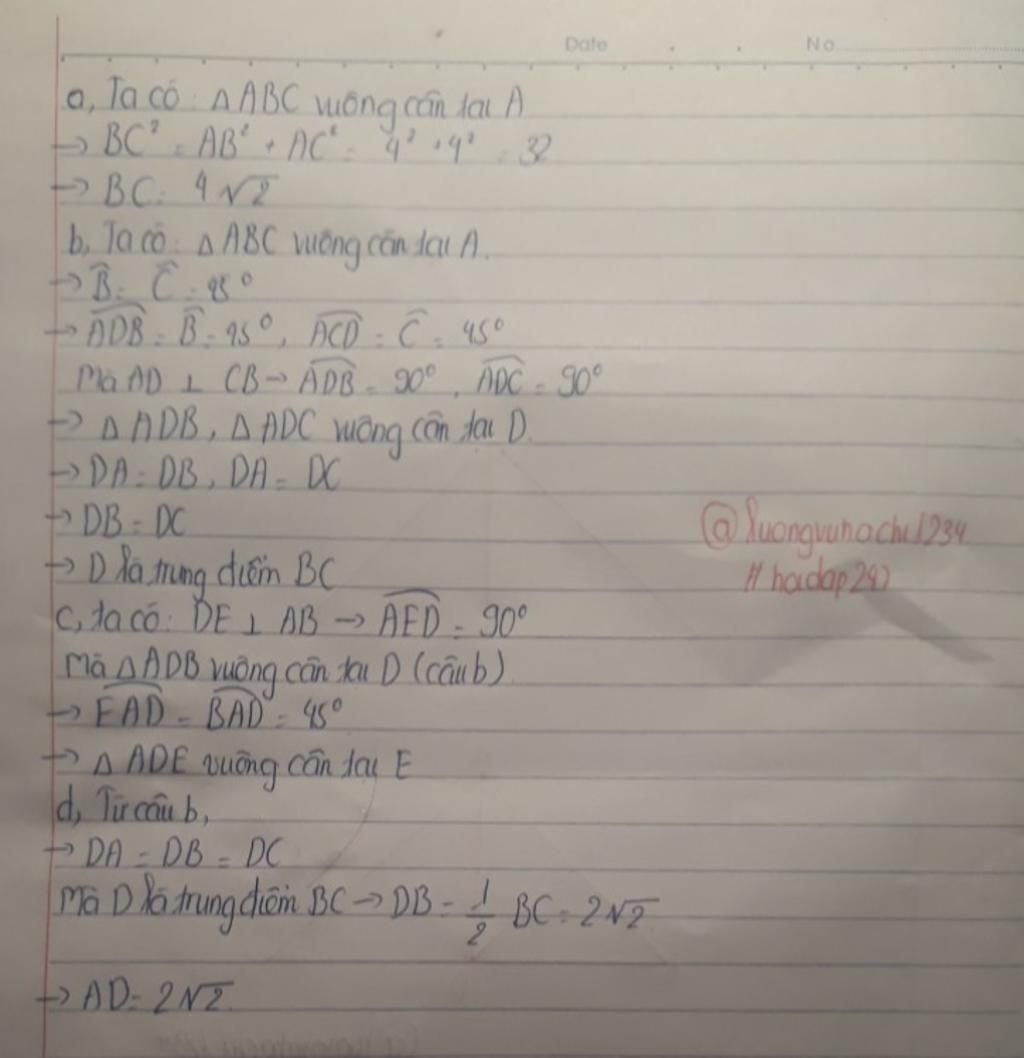 Date No
a, Ta có: △ABC vuông cân tại A
→ BC² = AB² + AC² = 4² + 4² = 32
→ BC = 4√2
b, Ta có: △ABC vuông cân tại A.
→ B̂ = Ĉ = 45°
→ \widehat{ADB} = B̂ = 45°, \widehat{ACD} = Ĉ = 45°
Mà AD ⊥ CB → \widehat{ADB} = 90°, \widehat{ADC} = 90°
→ △ADB, △ADC vuông cân tại D.
→ DA = DB, DA = DC
→ DB = DC
@luongvuhachi1234
→ D là trung điểm BC
#hoidap247
c, ta có: DE ⊥ AB → \widehat{AED} = 90°
Mà △ADB vuông cân tại D (câu b)
→ \widehat{EAD} = \widehat{BAD} = 45°
→ △ADE vuông cân tại E
d, Từ câu b,
→ DA = DB = DC
Mà D là trung điểm BC → DB = 1/2 BC = 2√2.
→ AD = 2√2.